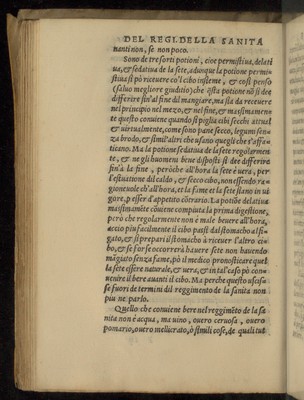 DEL REGI. DELLA SANITA
nanti non, se non poco.
Sono de tre sorti potioni, cioe permistiua, delati
ua, & sedatiua de la sete, adunque la potione permi
stiua si pò riceuere co'l cibo insieme, & così penso
(saluo megliore giuditio) che q̃sta potione nõ si dee
differire sin'al fine del mangiare, ma si la da receuere
nel principio nel mezo, & nel fine, & massimamen
te questo conuiene quando si piglia cibi secchi attual
& uirtualmente, come sono pane secco, legumi senza
brodo, & simil'altri che usano quegli che s'affa
ticano. Ma la potione sedatiua de la sete regolarmen
te, & ne gli huomeni bene disposti si dee differire
sin'à la fine, peròche all'hora la sete è uera, per
l'estuatione dil caldo, & secco cibo, non essendo ra
gioneuole ch'all'hora, et la fame et la sete siano in ui
gore, p esser d'appetito cõtrario. La potiõe delatiua
maximamẽte cõuene compiuta la prima digestione,
però che regolarmente non è male beuere all'hora,
accio piu facilmente il cibo passi dal stomacho al fi
gato, & si prepari il stomacho à riceuer l'altro ci
bo, & se forse occorrerà hauere sete non hauendo
mãgiato senza fame, pò il medico pronosticare quel
la sete essere naturale, & uera, & in tal caso pò con
uenire il bere auanti il cibo. Ma perche questo usci-
sse fuori de termini dil reggimento de la sanita non
piu ne parlo.
Quello che conuiene bere nel reggimẽto de la sa
nita non è acqua, ma uino, ouero ceruosa, ouero
pomario, ouero mellicrato, ò simili cose, de quali tut